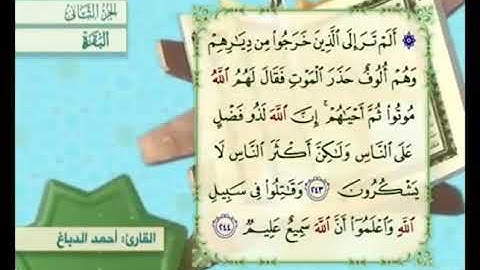 الجزء الثاني
البقرة
۞ أَلَمْ تَرَ إِلَى ٱلَّذِينَ خَرَجُوا۟ مِن دِيَـٰرِهِمْ
وَهُمْ أُلُوفٌ حَذَرَ ٱلْمَوْتِ فَقَالَ لَهُمُ ٱللَّهُ
مُوتُوا۟ ثُمَّ أَحْيَـٰهُمْ ۚ إِنَّ ٱللَّهَ لَذُو فَضْلٍ
عَلَى ٱلنَّاسِ وَلَـٰكِنَّ أَكْثَرَ ٱلنَّاسِ لَا
يَشْكُرُونَ ﴿٢٤٣﴾ وَقَـٰتِلُوا۟ فِى سَبِيلِ
ٱللَّهِ وَٱعْلَمُوٓا۟ أَنَّ ٱللَّهَ سَمِيعٌ عَلِيمٌ ﴿٢٤٤﴾
القارئ: أحمد الدباغ